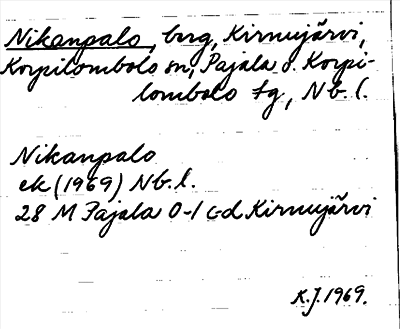 Nikanpalo, bvg, Kirnujärvi,
Korpilombolo sn, Pajala o. Korpi-
lombolo tg, Nb. l.
Nikanpalo
ek (1969) Nb. l.
28 M Pajala 0-1 c-d Kirnujärvi
K.J. 1969.